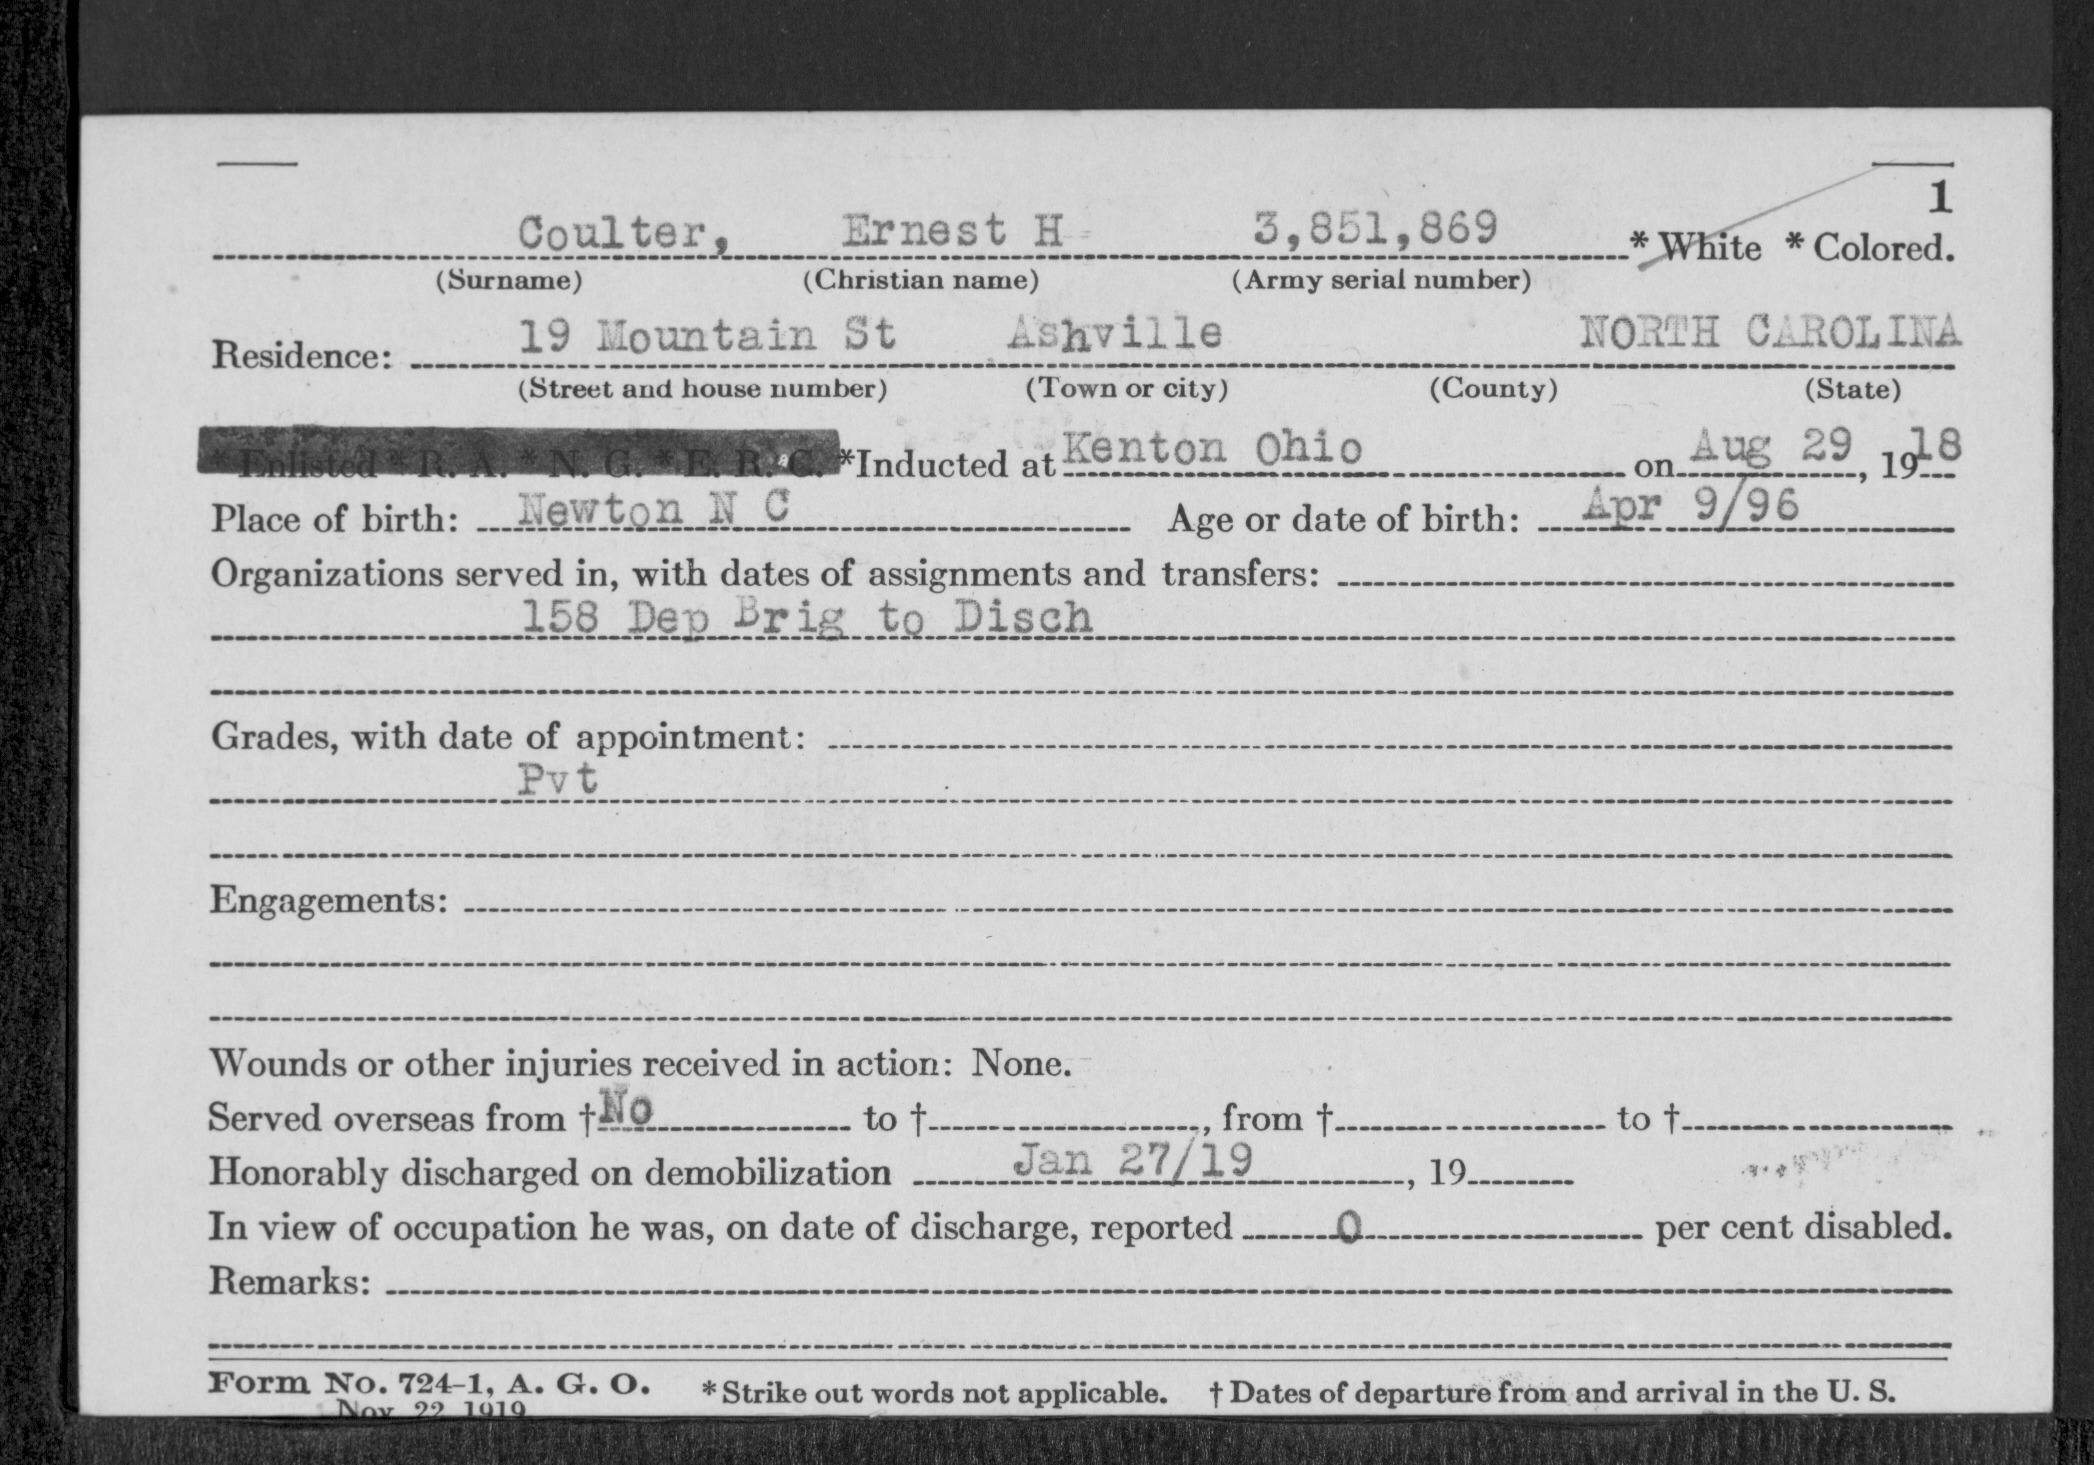 1
Coulter, Ernest H 3,851,869 * White * Colored.
(Surname) (Christian name) (Army serial number)
Residence: 19 Mountain St Ashville NORTH CAROLINA
(Street and house number) (Town or city) (County) (State)
* Enlisted * R. A. * N. G. * E. R. C. *Inducted at Kenton Ohio on Aug 29, 1918
Place of birth: Newton N C Age or date of birth: Apr 9/96
Organizations served in, with dates of assignments and transfers:
158 Dep Brig to Disch
Grades, with date of appointment:
Pvt
Engagements:
Wounds or other injuries received in action: None.
Served overseas from †No to †, from † to †
Honorably discharged on demobilization Jan 27/19, 19
In view of occupation he was, on date of discharge, reported 0 per cent disabled.
Remarks:
Form No. 724-1, A. G. O. * Strike out words not applicable. † Dates of departure from and arrival in the U. S.
Nov. 22, 1919